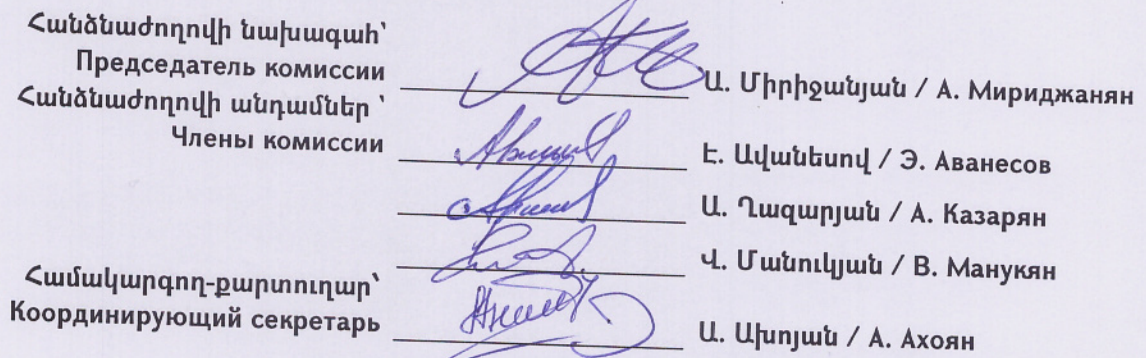 Հանձնաժողովի նախագահ՝
Председатель комиссии
Ա. Միրիջանյան / А. Мириджанян
Հանձնաժողովի անդամներ ՝
Члены комиссии
Է. Ավանեսով / Э. Аванесов
Ա. Ղազարյան / А. Казарян
Վ. Մանուկյան / В. Манукян
Համակարգող-քարտուղար՝
Координирующий секретарь
Ա. Ախոյան / А. Ахоян